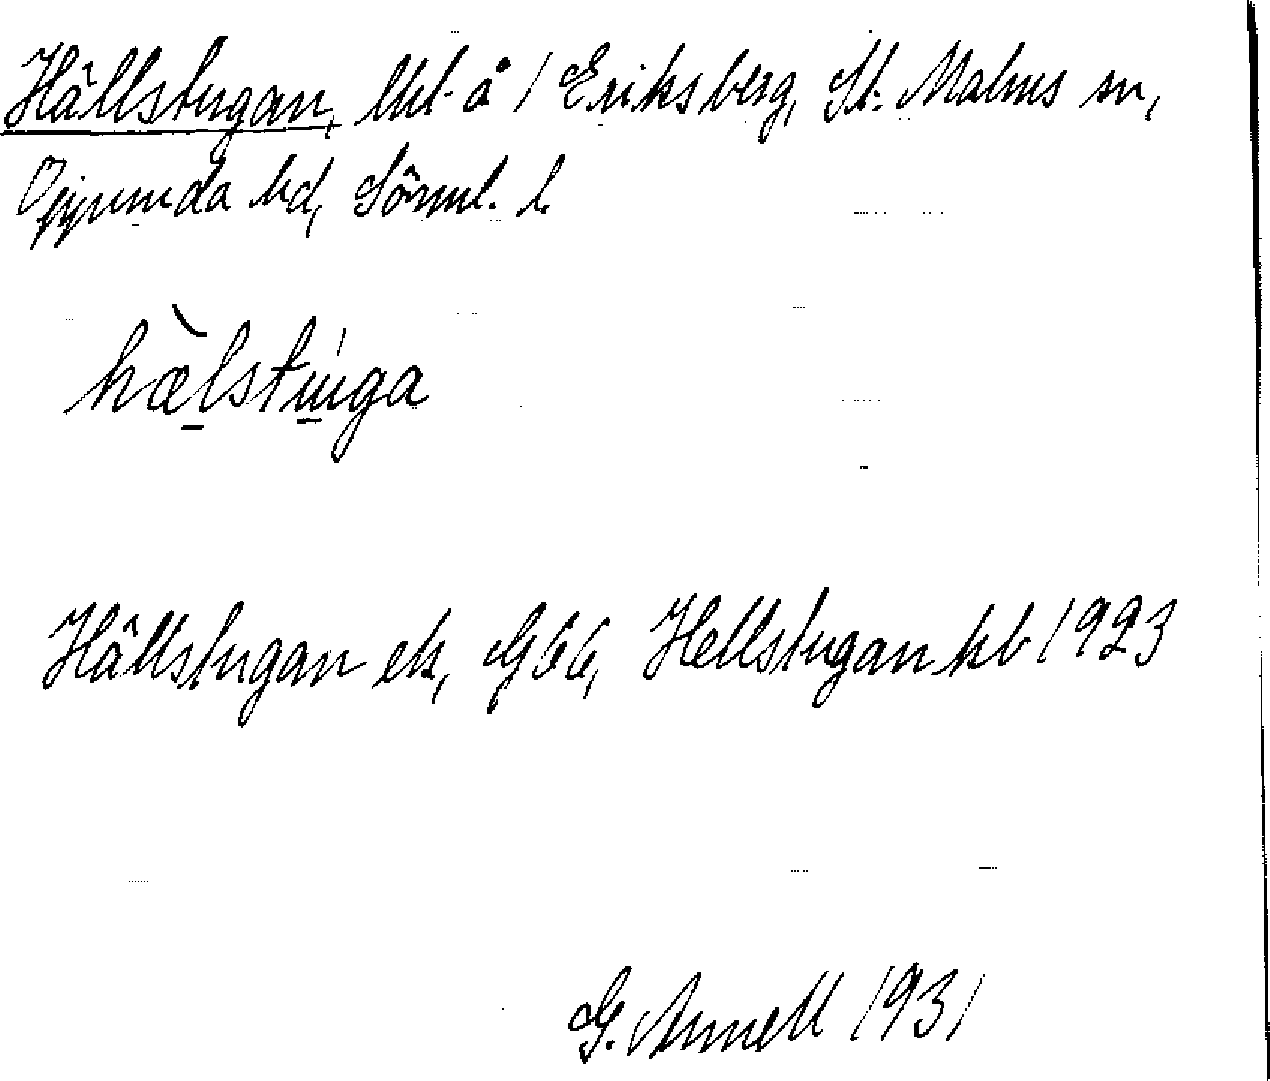 Hällstugan, lht. å 1 Eriksberg, St. Malms sn,
Oppunda hd, Sörml. l.
hælstuga
Hällstugan ek, G66, Hellstugan kb 1923
G. Annell 1931